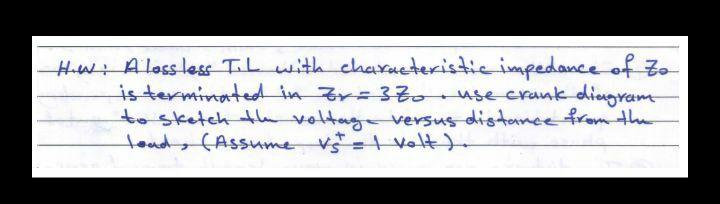 H.W: A lossless T.L with characteristic impedance of Zo
is terminated in Zr = 3Zo . use crank diagram
to sketch the voltage versus distance from the
load, (Assume Vs+ = 1 Volt).